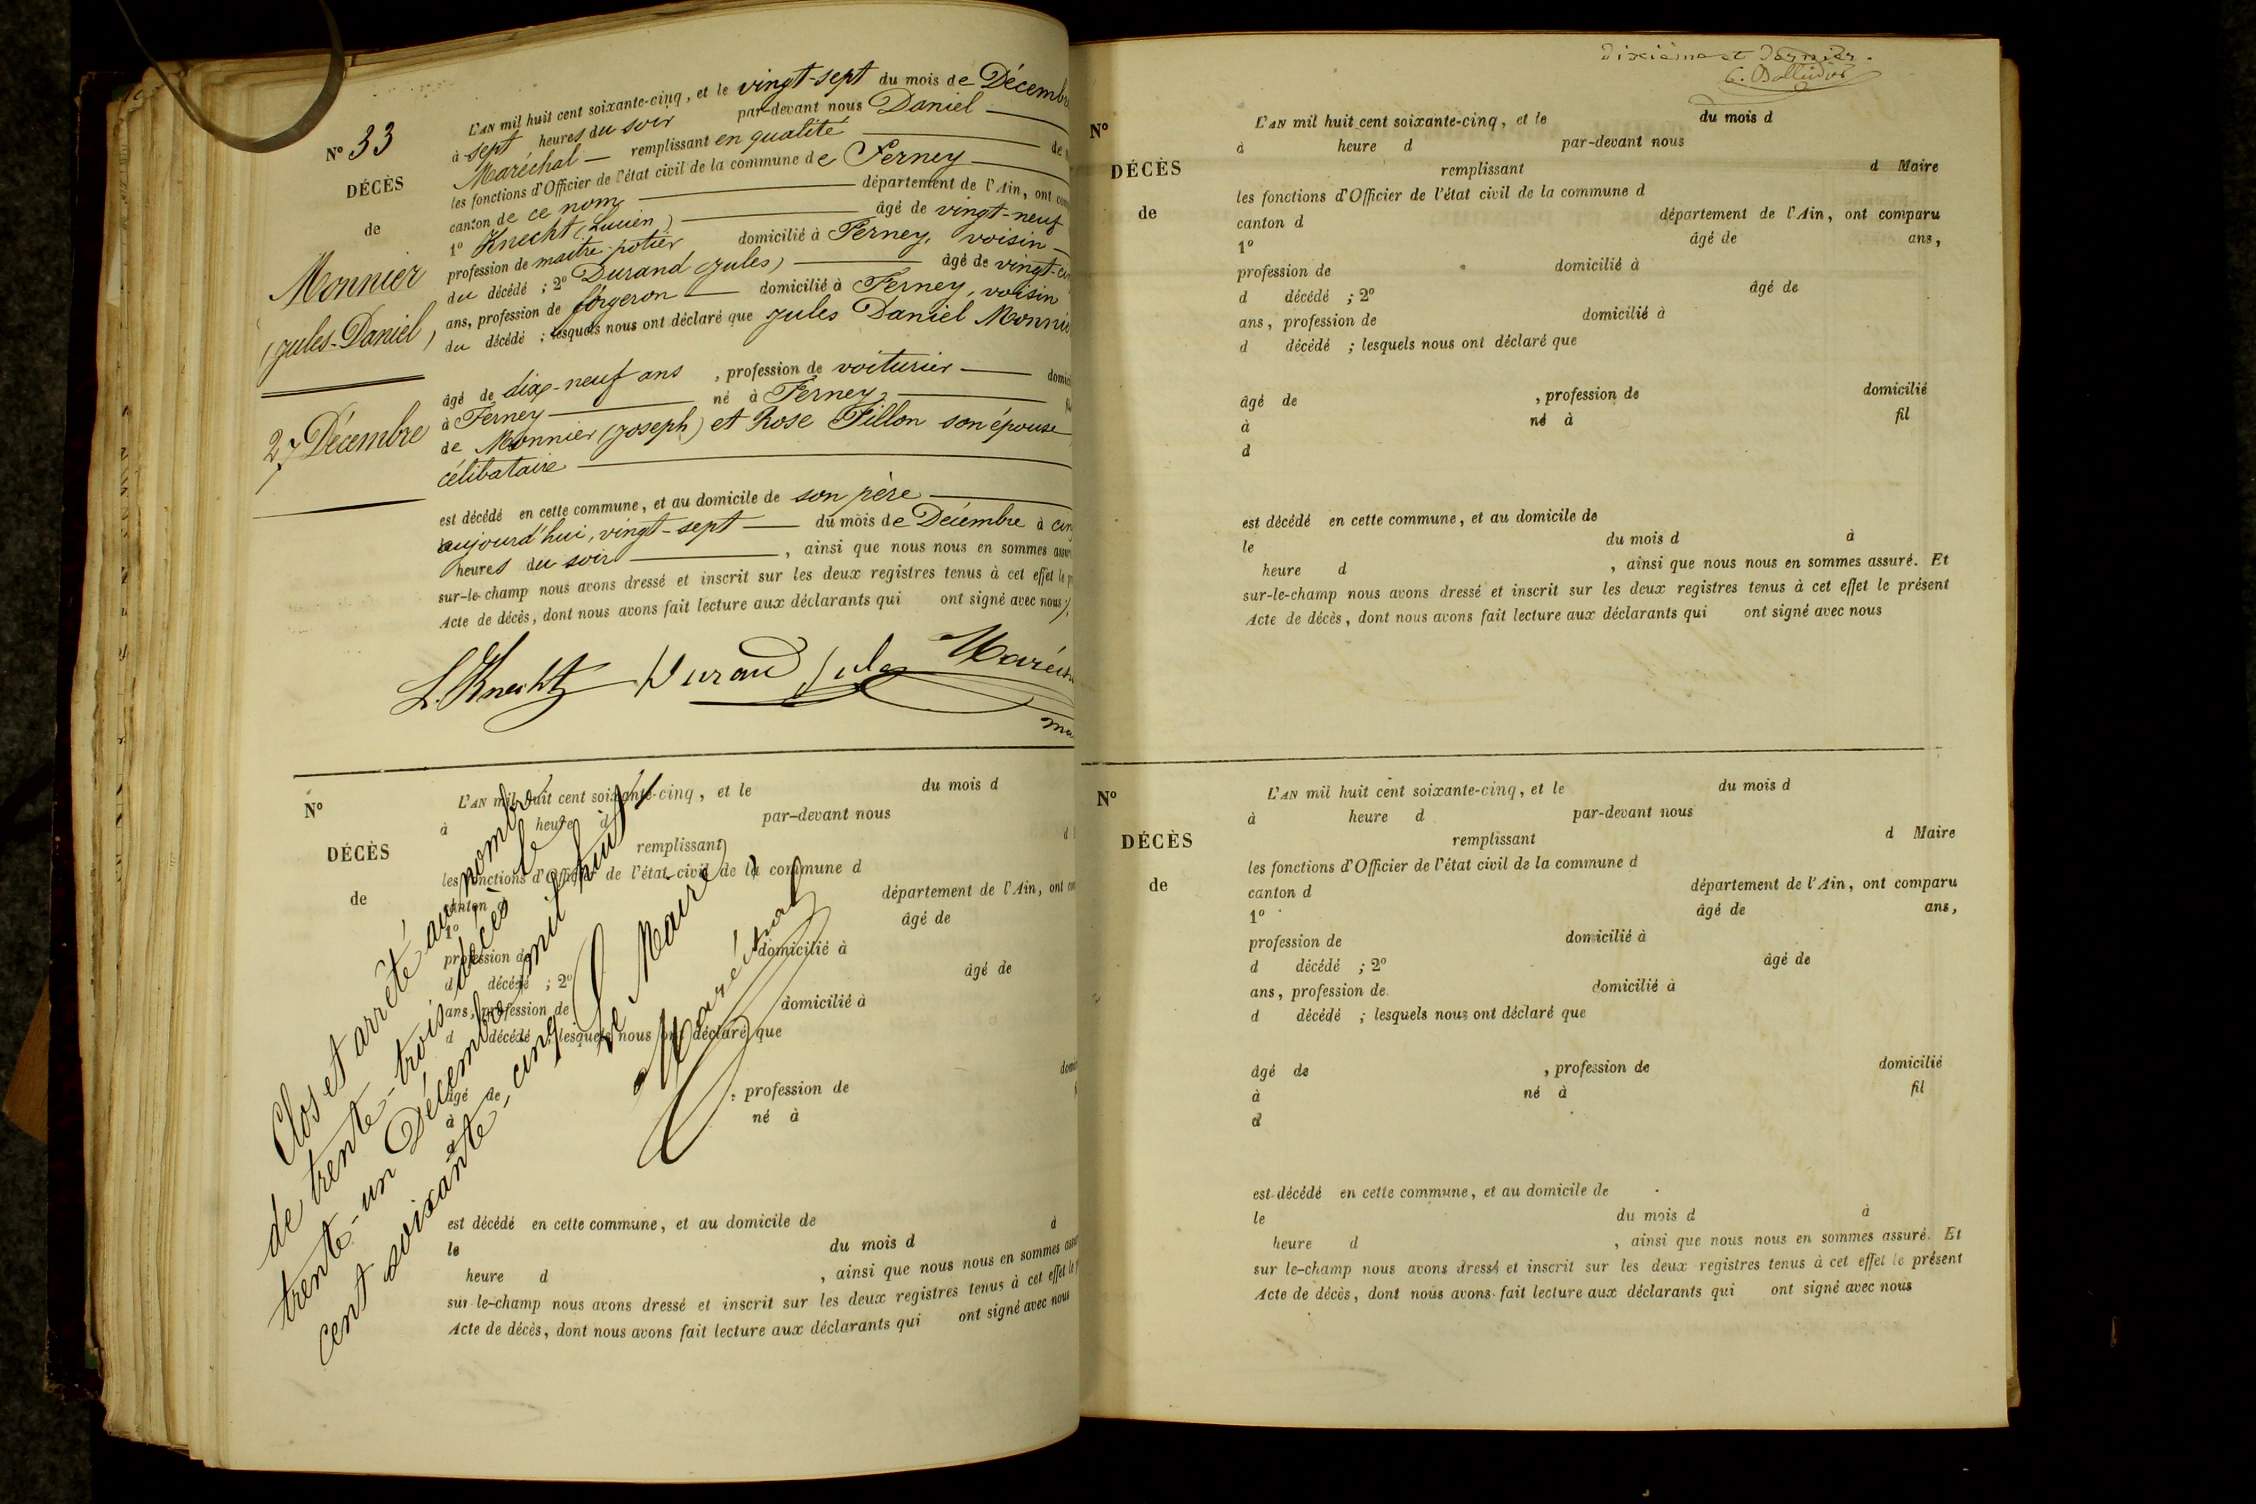 N° 33
DÉCÈS
de
Monnier
(Jules-Daniel)
27 Décembre
L'AN mil huit cent soixante-cinq, et le vingt-sept du mois de Décembre
à sept heures du soir par-devant nous Daniel
Maréchal remplissant en qualité de
les fonctions d'Officier de l'état civil de la commune de Ferney
canton de ce nom département de l'Ain, ont
1° Knecht (Lucien) âgé de vingt-neuf
profession de maître potier domicilié à Ferney, voisin
du décédé ; 2° Durand (Jules) âgé de
ans, profession de forgeron domicilié à Ferney, voisin
du décédé ; lesquels nous ont déclaré que Jules Daniel Monnier
âgé de dix-neuf ans, profession de voiturier
à Ferney né à Ferney,
de Monnier (Joseph) et Rose Fillon son épouse
célibataire
est décédé en cette commune, et au domicile de son père
aujourd'hui, vingt-sept du mois de Décembre à
heures du soir, ainsi que nous nous en sommes
sur-le-champ nous avons dressé et inscrit sur les deux registres tenus à cet effet le
Acte de décès, dont nous avons fait lecture aux déclarants qui ont signé avec nous
L. Knecht Durand Jules
N°
DÉCÈS
de
L'AN mil huit cent soixante-cinq, et le du mois d
à heure d par-devant nous
remplissant d
les fonctions d'Officier de l'état civil de la commune d
canton d département de l'Ain, ont
1° âgé de
profession de domicilié à
d décédé ; 2° âgé de
ans, profession de domicilié à
d décédé ; lesquels nous ont déclaré que
âgé de , profession de
à né à
d
est décédé en cette commune, et au domicile de
le du mois d d
heure d , ainsi que nous nous en sommes
sur-le-champ nous avons dressé et inscrit sur les deux registres tenus à cet effet le
Acte de décès, dont nous avons fait lecture aux déclarants qui ont signé avec nous
Clos et arrêté au nombre
de trente-trois décès le
trente-un Décembre mil huit
cent soixante-cinq
Le Maire
Maréchal
Dixième et Dernier.
N°
DÉCÈS
de
L'AN mil huit cent soixante-cinq, et le du mois d
à heure d par-devant nous
remplissant d Maire
les fonctions d'Officier de l'état civil de la commune d
canton d département de l'Ain, ont comparu
1° âgé de ans,
profession de domicilié à
d décédé ; 2° âgé de
ans, profession de domicilié à
d décédé ; lesquels nous ont déclaré que
âgé de , profession de domicilié
à né à fil
d
est décédé en cette commune, et au domicile de
le du mois d à
heure d , ainsi que nous nous en sommes assuré. Et
sur-le-champ nous avons dressé et inscrit sur les deux registres tenus à cet effet le présent
Acte de décès, dont nous avons fait lecture aux déclarants qui ont signé avec nous
N°
DÉCÈS
de
L'AN mil huit cent soixante-cinq, et le du mois d
à heure d par-devant nous
remplissant d Maire
les fonctions d'Officier de l'état civil de la commune d
canton d département de l'Ain, ont comparu
1° âgé de ans,
profession de domicilié à
d décédé ; 2° âgé de
ans, profession de domicilié à
d décédé ; lesquels nous ont déclaré que
âgé de , profession de domicilié
à né à fil
d
est décédé en cette commune, et au domicile de
le du mois d à
heure d , ainsi que nous nous en sommes assuré. Et
sur le-champ nous avons dressé et inscrit sur les deux registres tenus à cet effet le présent
Acte de décès, dont nous avons fait lecture aux déclarants qui ont signé avec nous